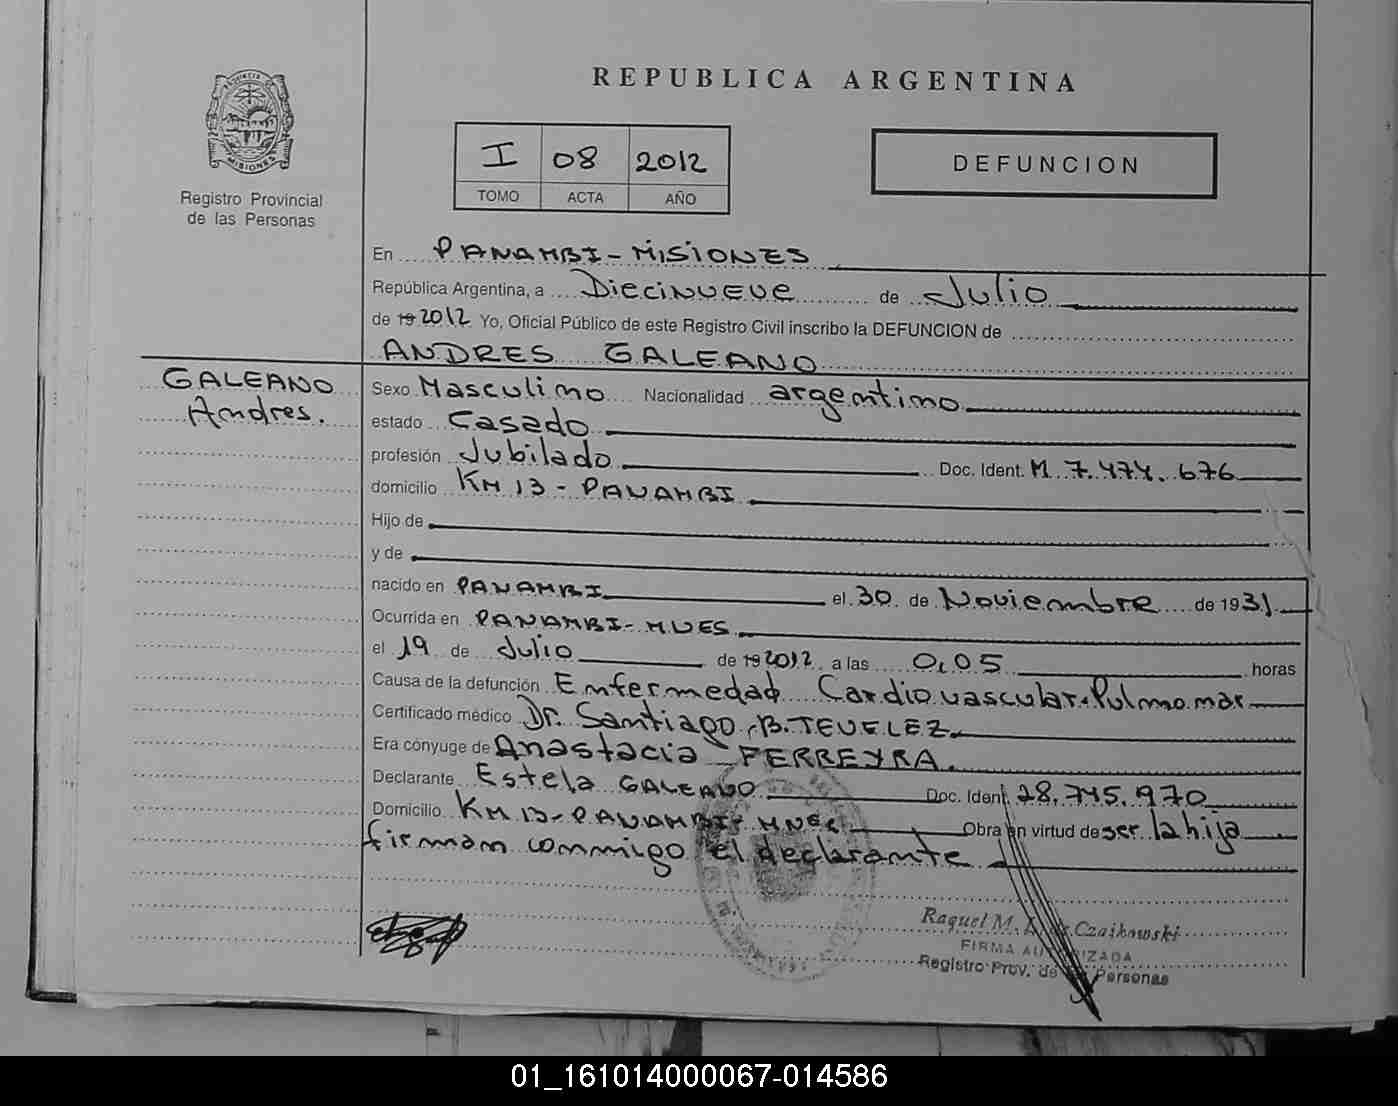 REPUBLICA ARGENTINA
PROVINCIA DE MISIONES
Registro Provincial
de las Personas
I 08 2012
TOMO ACTA AÑO
DEFUNCION
En PANAMBI - MISIONES
República Argentina, a Diecinueve de Julio
de 19 2012 Yo, Oficial Público de este Registro Civil inscribo la DEFUNCION de
ANDRES GALEANO
GALEANO
Andres.
Sexo Masculino Nacionalidad argentino
estado Casado
profesión Jubilado Doc. Ident. M. 7.474.676
domicilio KM 13 - PANAMBI
Hijo de
y de
nacido en PANAMBI el 30 de Noviembre de 1931
Ocurrida en PANAMBI - MNES
el 19 de Julio de 19 2012 a las 0,05 horas
Causa de la defunción Enfermedad Cardiovascular. Pulmonar
Certificado médico Dr. Santiago B. TEVELEZ
Era cónyuge de Anastacia FERREYRA.
Declarante Estela GALEANO Doc. Ident. 28.745.970
Domicilio KM 13 - PANAMBI - MNES Obra en virtud de ser la hija
firman conmigo el declarante
Raquel M. Czaikowski
FIRMA AUTORIZADA
Registro Prov. de las Personas
01_161014000067-014586